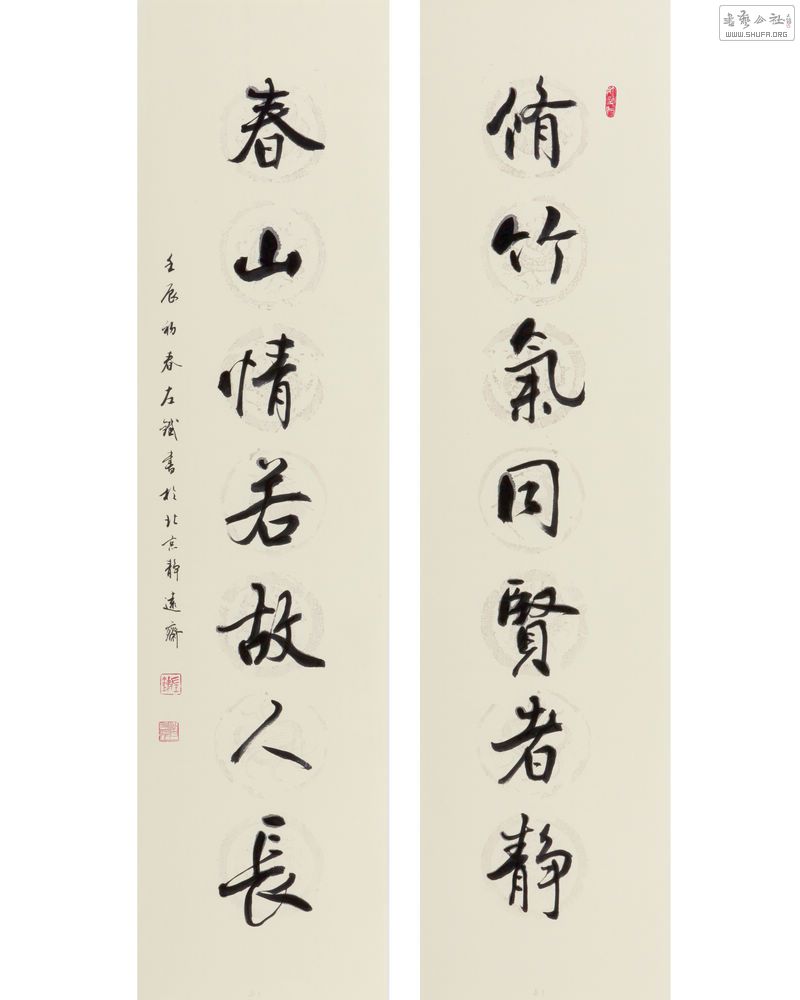 脩竹氣同賢者静
春山情若故人長
壬辰初春左鐵書於北京静遠齋
書藝公社
WWW.SHUFA.ORG